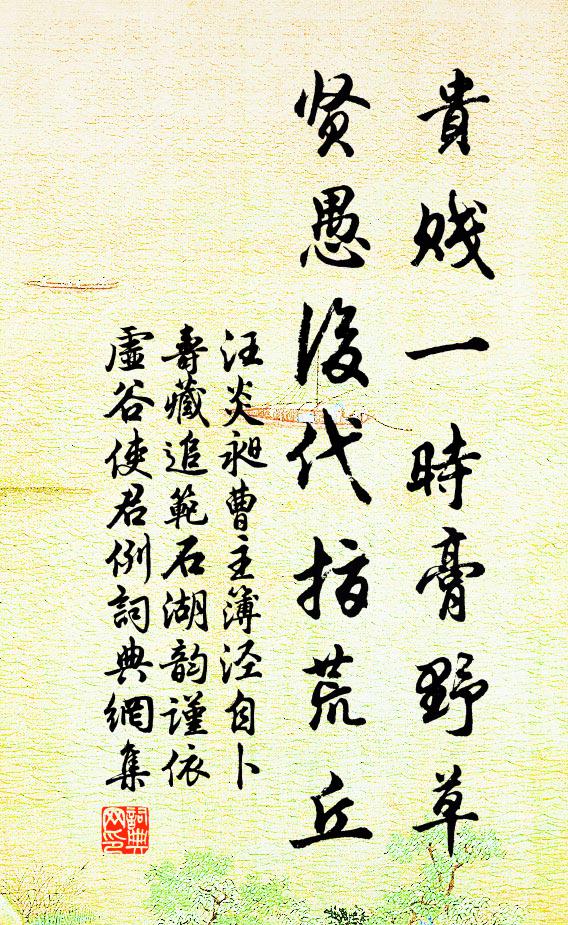 貴賤一時膏野草
贤愚後代指荒丘
汪炎昶曹主簿泾自卜
壽藏追範石湖韵謹依
虛谷使君例詞典網集
詞典
网印